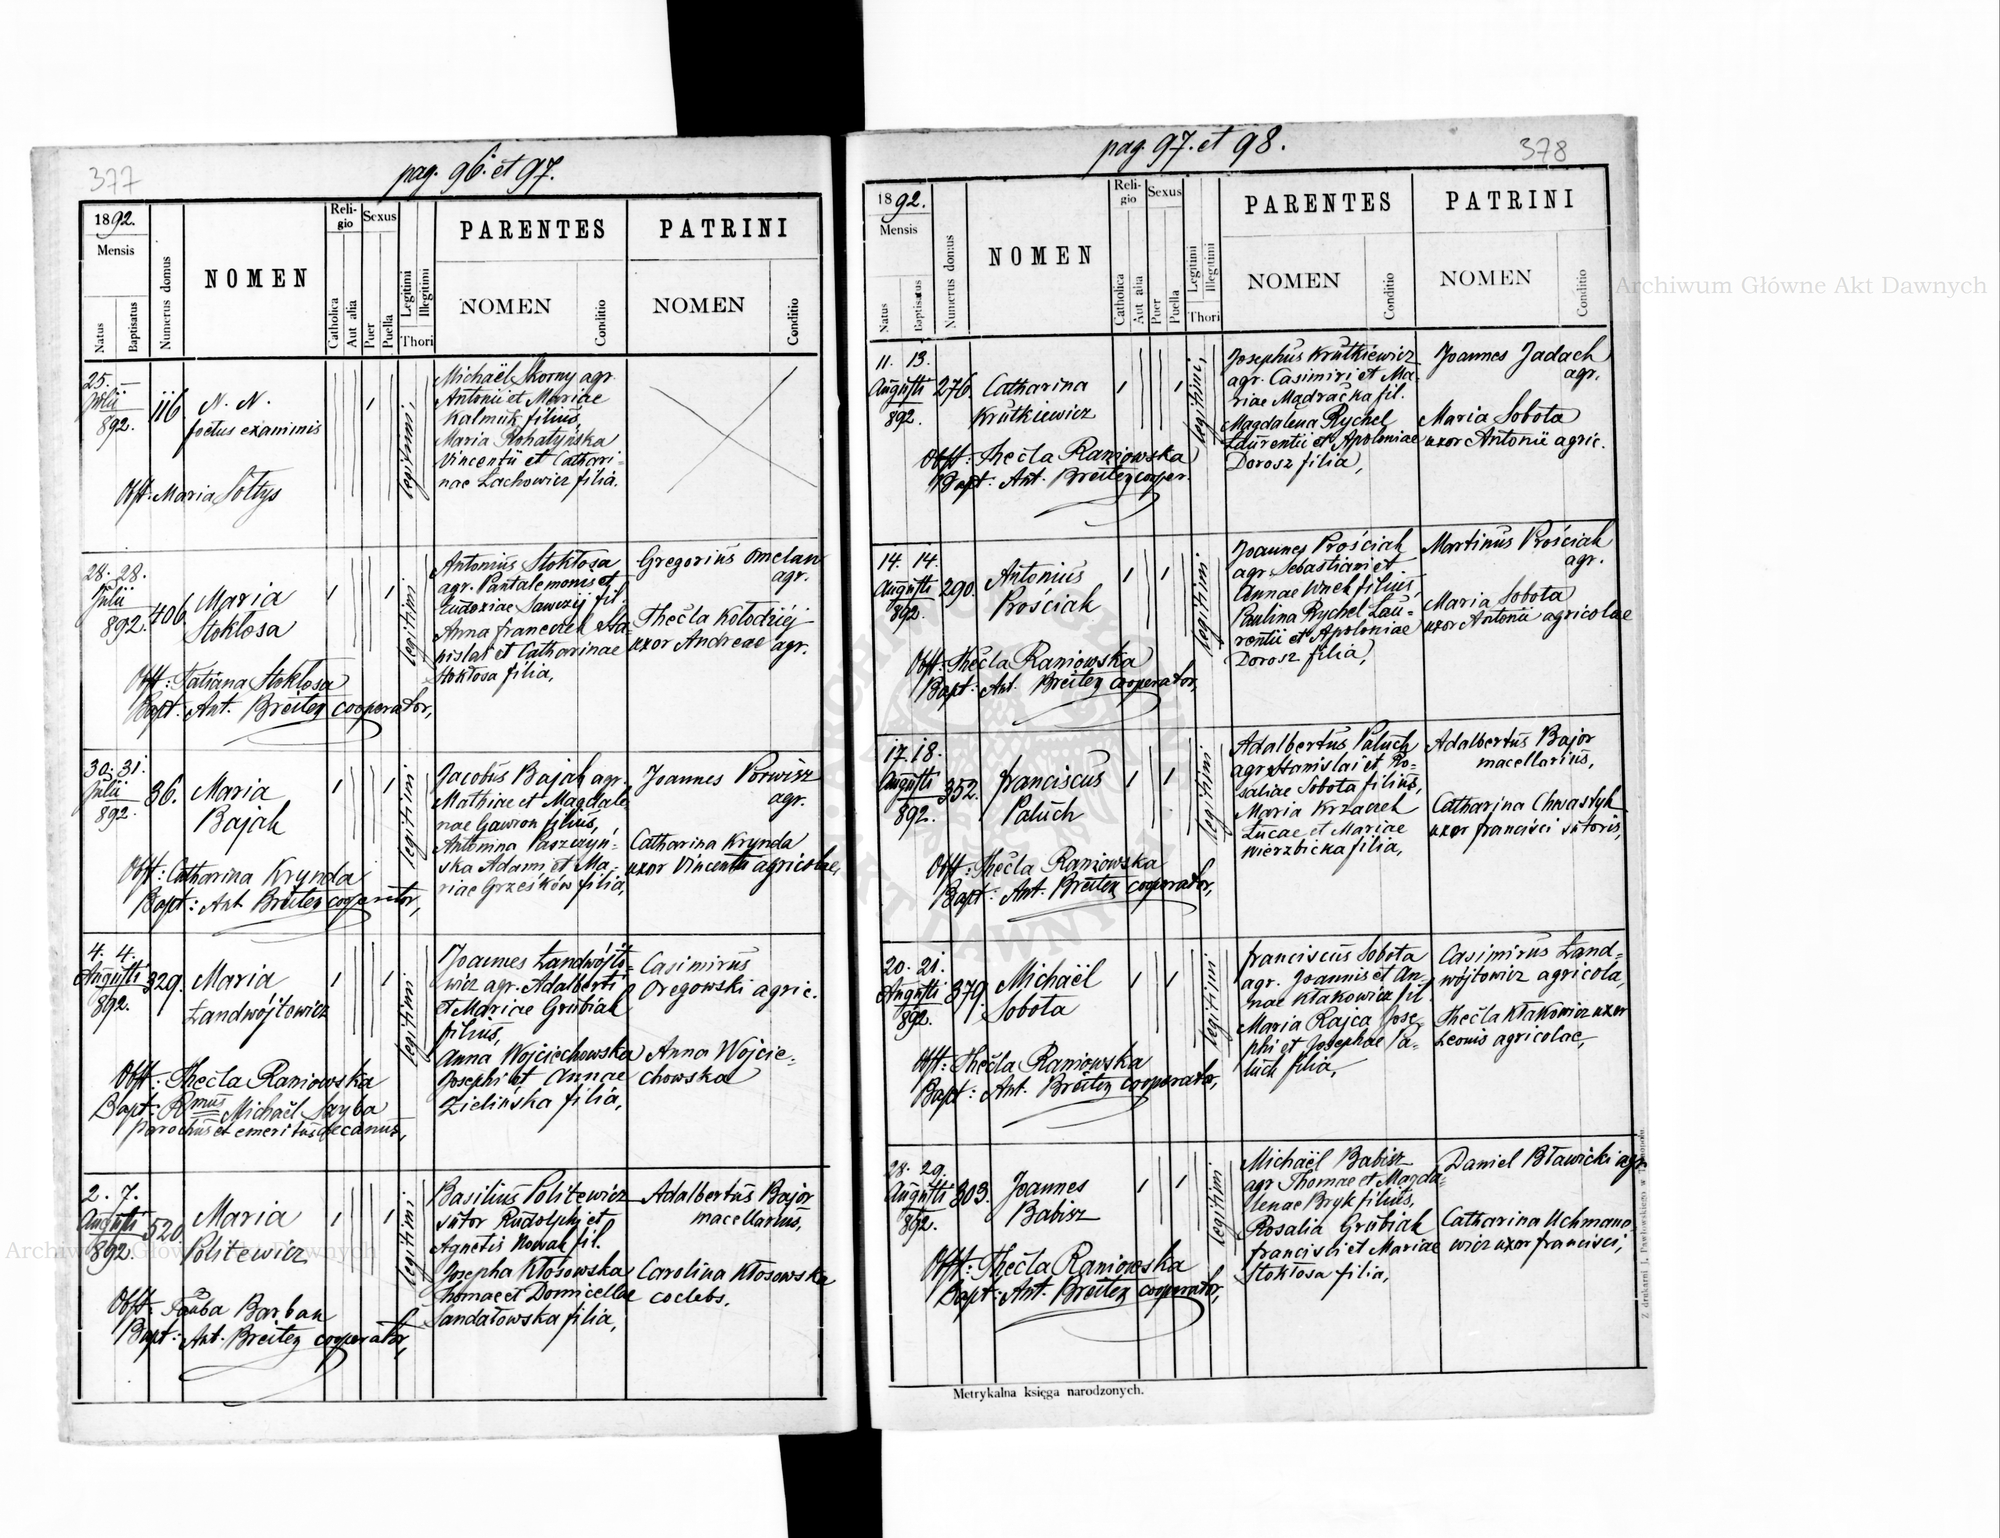 377
pag. 96. et 97.
1892.
Mensis
Natus
Baptisatus
Numerus domus
NOMEN
Reli-
gio
Catholica
Aut alia
Sexus
Puer
Puella
Legitimi
Illegitimi
Thori
PARENTES
NOMEN
Conditio
PATRINI
NOMEN
Conditio
25.
Julii
892.
116.
N. N.
foetus exanimis
Obst: Maria Sołtys
legitimi,
Michaël Skorny agr.
Antonii et Mariae
Kalmuk filius,
Maria Rohatyńska
Vincentii et Cathari-
nae Lachowicz filia.
28. 28.
Julii
892.
406.
Maria
Stokłosa
Obst: Tatiana Stokłosa
Bapt: Ant. Breiter cooperator,
legitimi
Antonius Stokłosa
agr. Pantalemonis et
Eudoxiae Sawczij fil
Anna Franczek Sta
nislai et Catharinae
Stokłosa filia,
Gregorius Omelan
agr.
Thecla Kołodziej
uxor Andreae agr.
30. 31.
Julii
892.
36.
Maria
Bajak
Obst: Catharina Krynda
Bapt: Ant Breiter cooperator,
legitimi
Jacobus Bajak agr.
Mathiae et Magdale
nae Gawron filius,
Antonina Paszczyń-
ska Adami et Ma-
riae Grzesków filia,
Joannes Porwisz
agr.
Catharina Krynda
uxor Vincentii agricolae,
4. 4.
Augusti
892.
329.
Maria
Landwójtowicz
Obst: Thecla Raniowska
Bapt: Rmus Michaël Sayba
parochus et emeritus decanus,
legitimi
Joannes Landwójto-
wicz agr. Adalberti
et Mariae Grubiak
filius,
Anna Wojciechowska
Josephi et Annae
Zielińska filia,
Casimirus
Oregowski agric.
Anna Wojcie-
chowska
2. 7.
Augusti
892.
520.
Maria
Politewicz
Obst: Tauba Barban
Bapt: Ant. Breiter cooperator,
legitimi
Basilius Politewicz
sutor Rudolphi et
Agnetis Nowak fil.
Josepha Kłosowska
Thomae et Domicellae
Sandałowska filia,
Adalbertus Bajor
macellarius,
Carolina Kłosowska
coelebs.
378
pag. 97. et 98.
1892.
Mensis
Natus
Baptisatus
Numerus domus
NOMEN
Reli-
gio
Catholica
Aut alia
Sexus
Puer
Puella
Legitimi
Illegitimi
Thori
PARENTES
NOMEN
Conditio
PATRINI
NOMEN
Conditio
11. 13.
Augusti
892.
276.
Catharina
Krutkiewicz
Obst: Thecla Raniowska
Bapt: Ant. Breiter cooper.
legitimi,
Josephus Krutkiewicz
agr. Casimiri et Ma-
riae Mądračka fil.
Magdalena Rychel
Laurentii et Apoloniae
Dorosz filia,
Joannes Jadach
agr.
Maria Sobota
uxor Antonii agric.
14. 14.
Augusti
892.
290.
Antonius
Prościak
Obst: Thecla Raniowska
Bapt: Ant. Breiter cooperator,
legitimi
Joannes Prościak
agr. Sebastiani et
Annae Wnek filius,
Paulina Rychel Lau-
rentii et Apoloniae
Dorosz filia,
Martinus Prościak
agr.
Maria Sobota
uxor Antonii agricolae
17. 18.
Augusti
892.
352.
Franciscus
Paluch
Obst: Thecla Raniowska
Bapt: Ant. Breiter cooperator,
legitimi
Adalbertus Paluch
agr. Stanislai et Ro-
saliae Sobota filius,
Maria Krzaczek
Lucae et Mariae
Wierzbicka filia,
Adalbertus Bajor
macellarius,
Catharina Chwastyk
uxor Francisci sutoris,
20. 21.
Augusti
892.
379.
Michaël
Sobota
Obst: Thecla Raniowska
Bapt: Ant. Breiter cooperator,
legitimi
Franciscus Sobota
agr. Joannis et An-
nae Kłakowicz fil.
Maria Rajca Jose
phi et Josephae Pa-
luch filia,
Casimirus Land-
wójtowicz agricola,
Thecla Kłakowicz uxor
Leonis agricolae,
28. 29.
Augusti
892.
303.
Joannes
Babisz
Obst: Thecla Raniowska
Bapt: Ant. Breiter cooperator,
legitimi
Michaël Babisz
agr Thomae et Magda-
lenae Bryk filius,
Rosalia Grubiak
Francisci et Mariae
Stokłosa filia,
Daniel Bławicki agr
Catharina Uchmano
wicz uxor Francisci,
Metrykalna księga narodzonych.
Z drukarni J. Pawłowskiego w Tarnopolu.
Archiwum Główne Akt Dawnych
Archiwum Główne Akt Dawnych